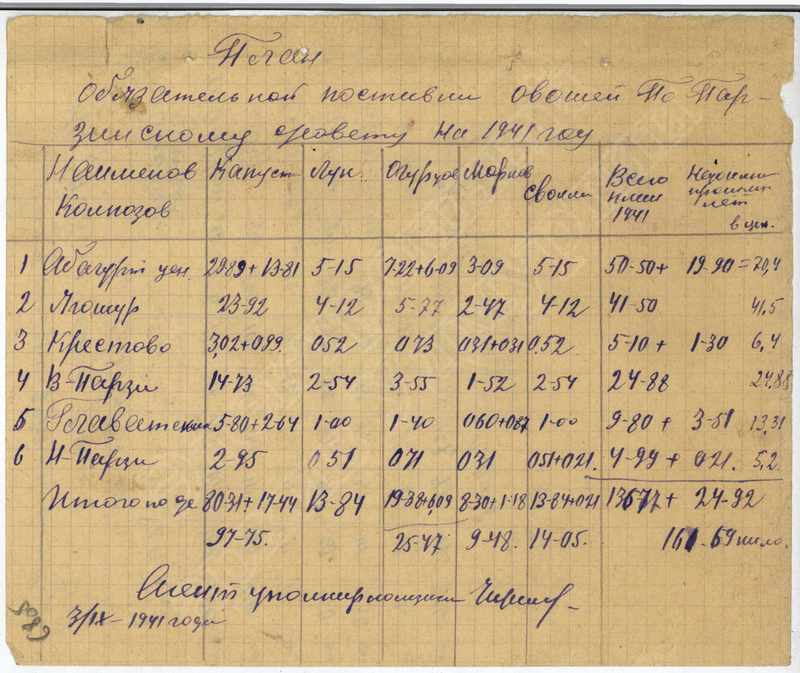 План
обязательной поставки овошей По Пар-
зинскому совету на 1941 году
Наименов Колхозов Капуст Лук Огурцов Морков Свекла Всего план 1941 лет в цен.
1 цен. 29-89 + 13-81 5-15 7-22+6-09 3-09 5-15 50-50 + 19-90 = 70,4
2 Ягошур 23-92 4-12 5-77 2-47 4-12 41-50 41,5
3 Крестово 3,02+0,99. 052 073 031+031 0,52. 5-10 + 1-30 6,4
4 В-Парзи 14-73 2-54 3-55 1-52 2-54 24-88 24,88
5 5-80+2-64 1-00 1-40 060+087 1-00 9-80 + 3-51 13,31
6 Н-Парзи 2-95 051 071 031 051+021. 4-99 + 021. 5,2
Итого 80-31+17-44 13-84 19-38+6,09 8-30+1-18 13-84+021 136-77 + 24-92
97-75. 25-47 9-48. 14-05. 161-69
Агент
3/IX-1941 года